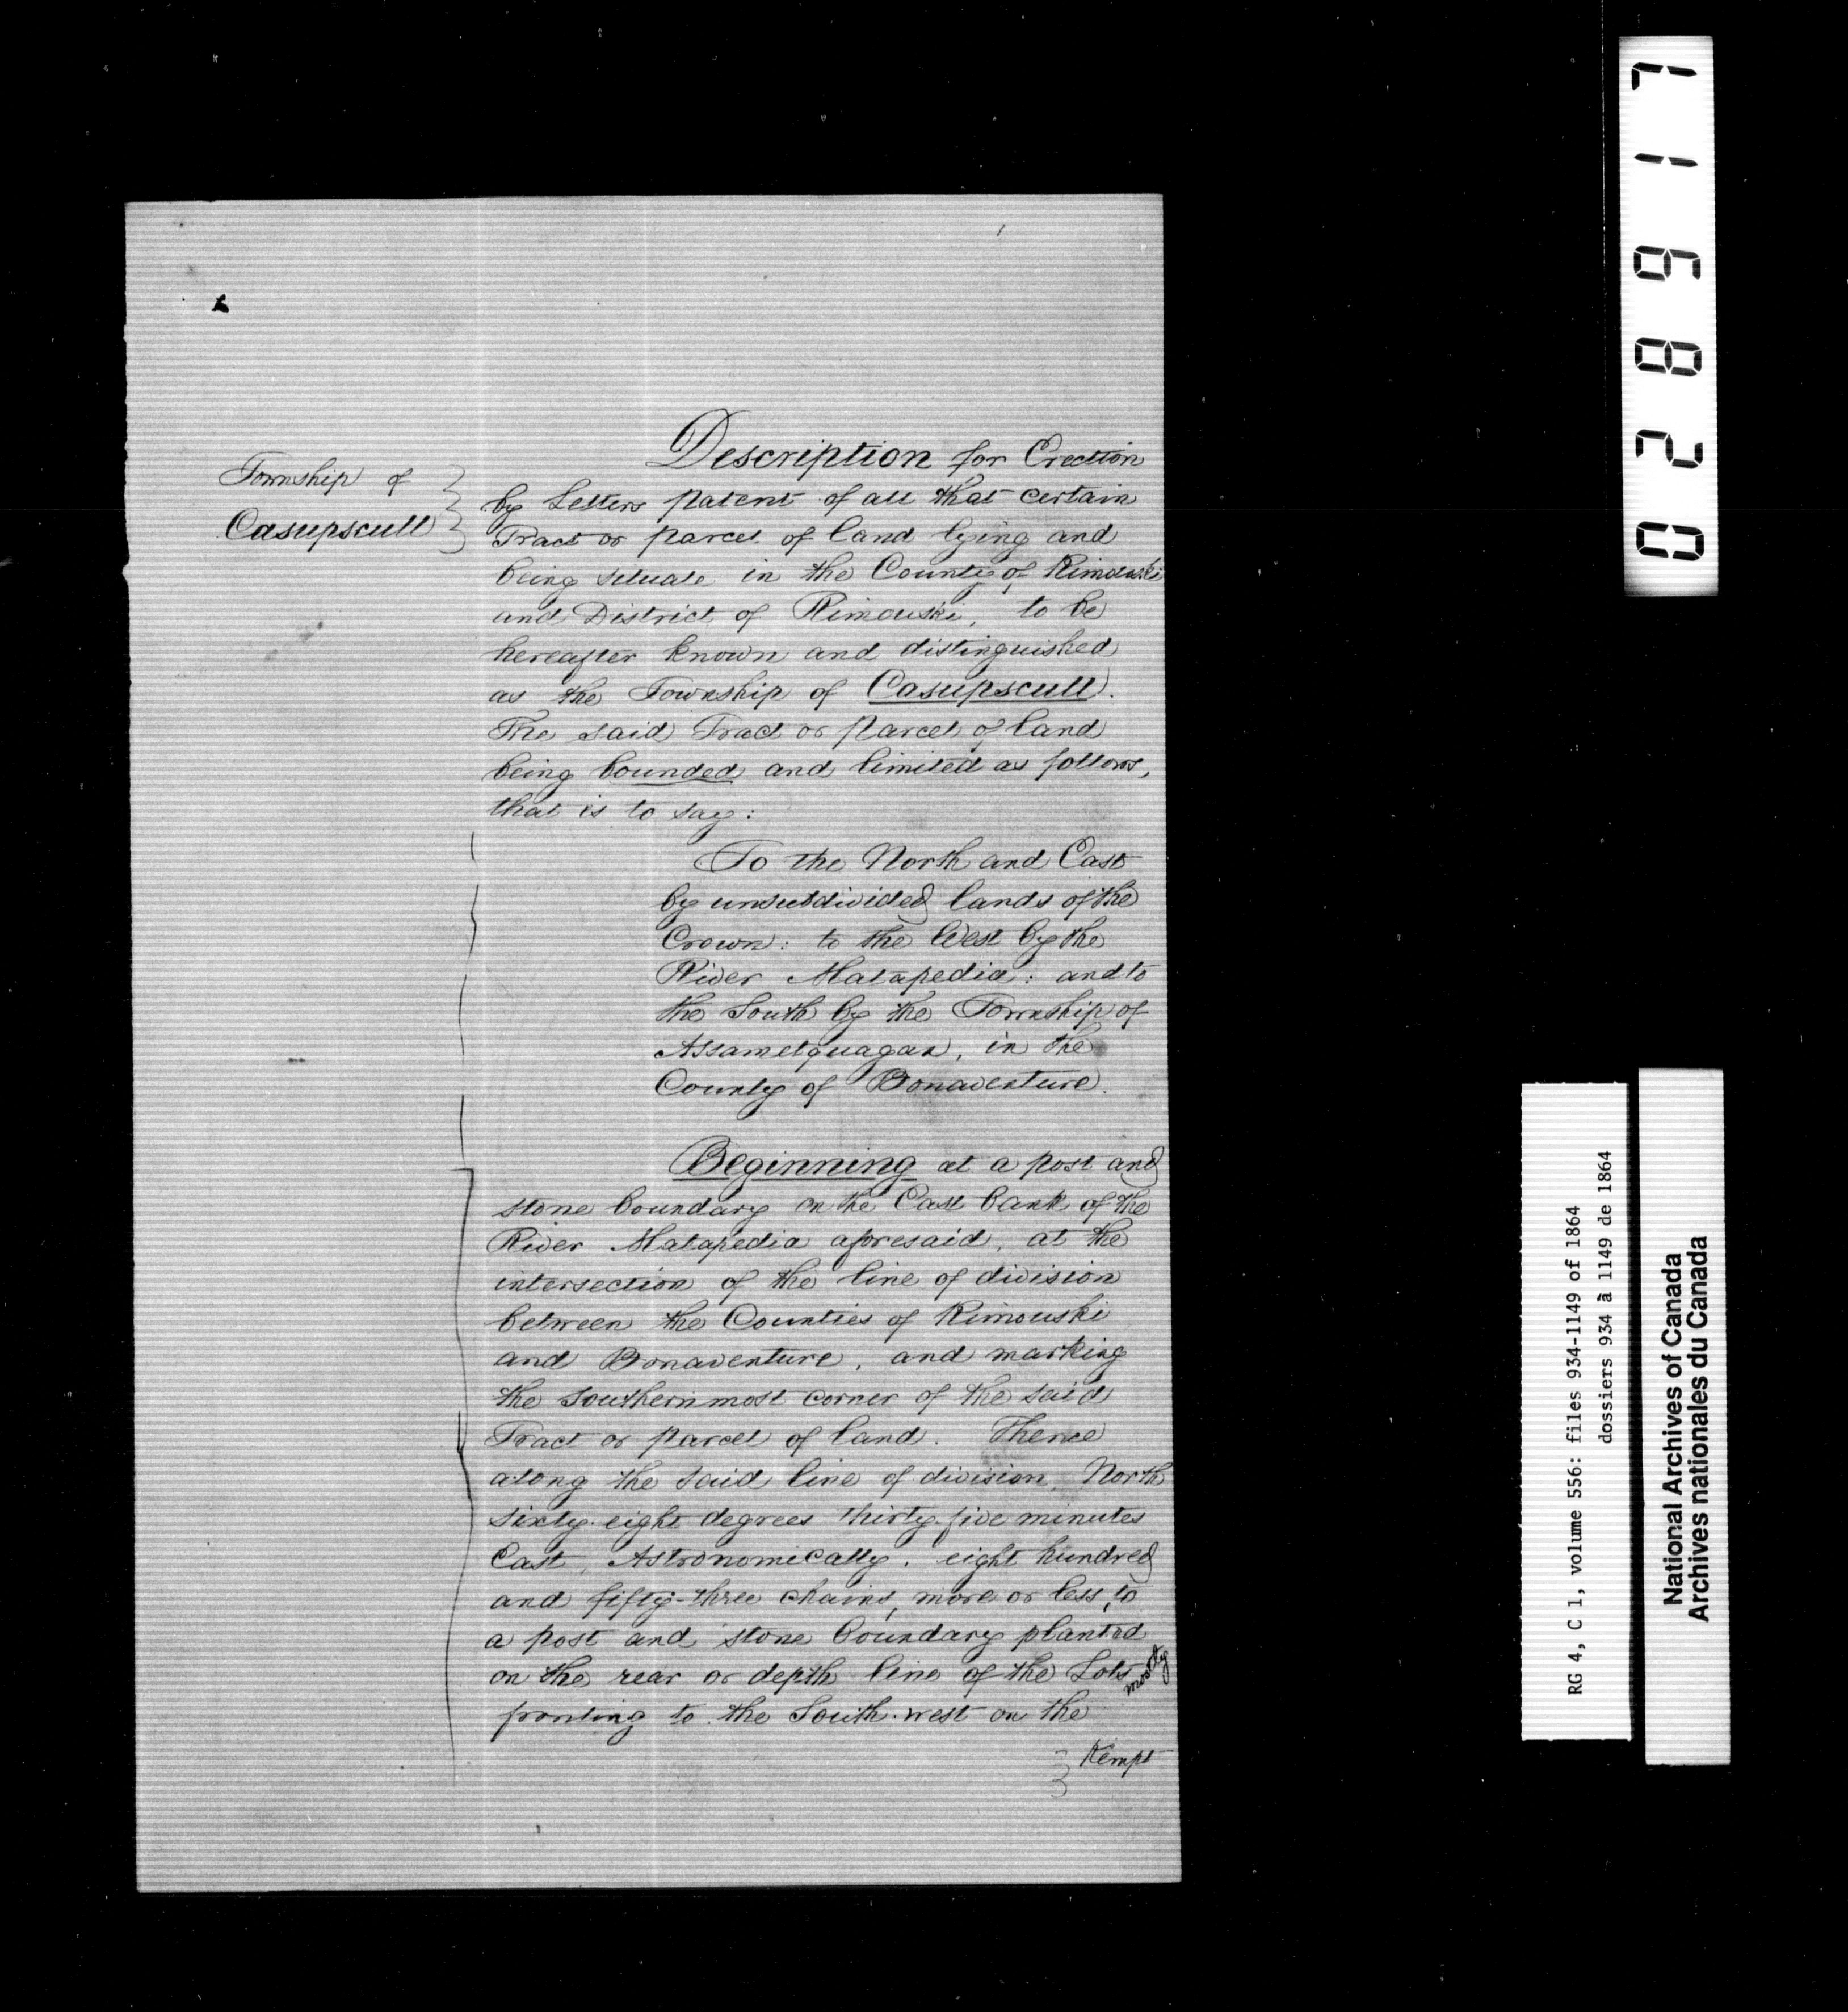 Township of
Casupscull
Description for Erection
by Letters patent of all that certain
Tract or parcel of land lying and
being situate in the County of Rimouski
and District of Rimouski, to be
hereafter known and distinguished
as the Township of Casupscull.
The said Tract or parcel of land
being bounded and limited as follows,
that is to say:
To the North and East
by unsubdivided lands of the
Crown: to the West by the
River Matapedia: and to
the South by the Township of
Assametquagan, in the
County of Bonaventure.
Beginning at a post and
stone boundary on the East bank of the
River Matapedia aforesaid, at the
intersection of the line of division
between the Counties of Rimouski
and Bonaventure, and marking
the southernmost corner of the said
Tract or parcel of land. Thence
along the said line of division, North
sixty eight degrees thirty-five minutes
East, Astronomically, eight hundred
and fifty-three chains, more or less, to
a post and stone boundary planted
on the rear or depth line of the Lots mostly
fronting to the South-west on the
Kempt
028917
RG 4, C 1, volume 556: files 934-1149 of 1864
dossiers 934 à 1149 de 1864
National Archives of Canada
Archives nationales du Canada